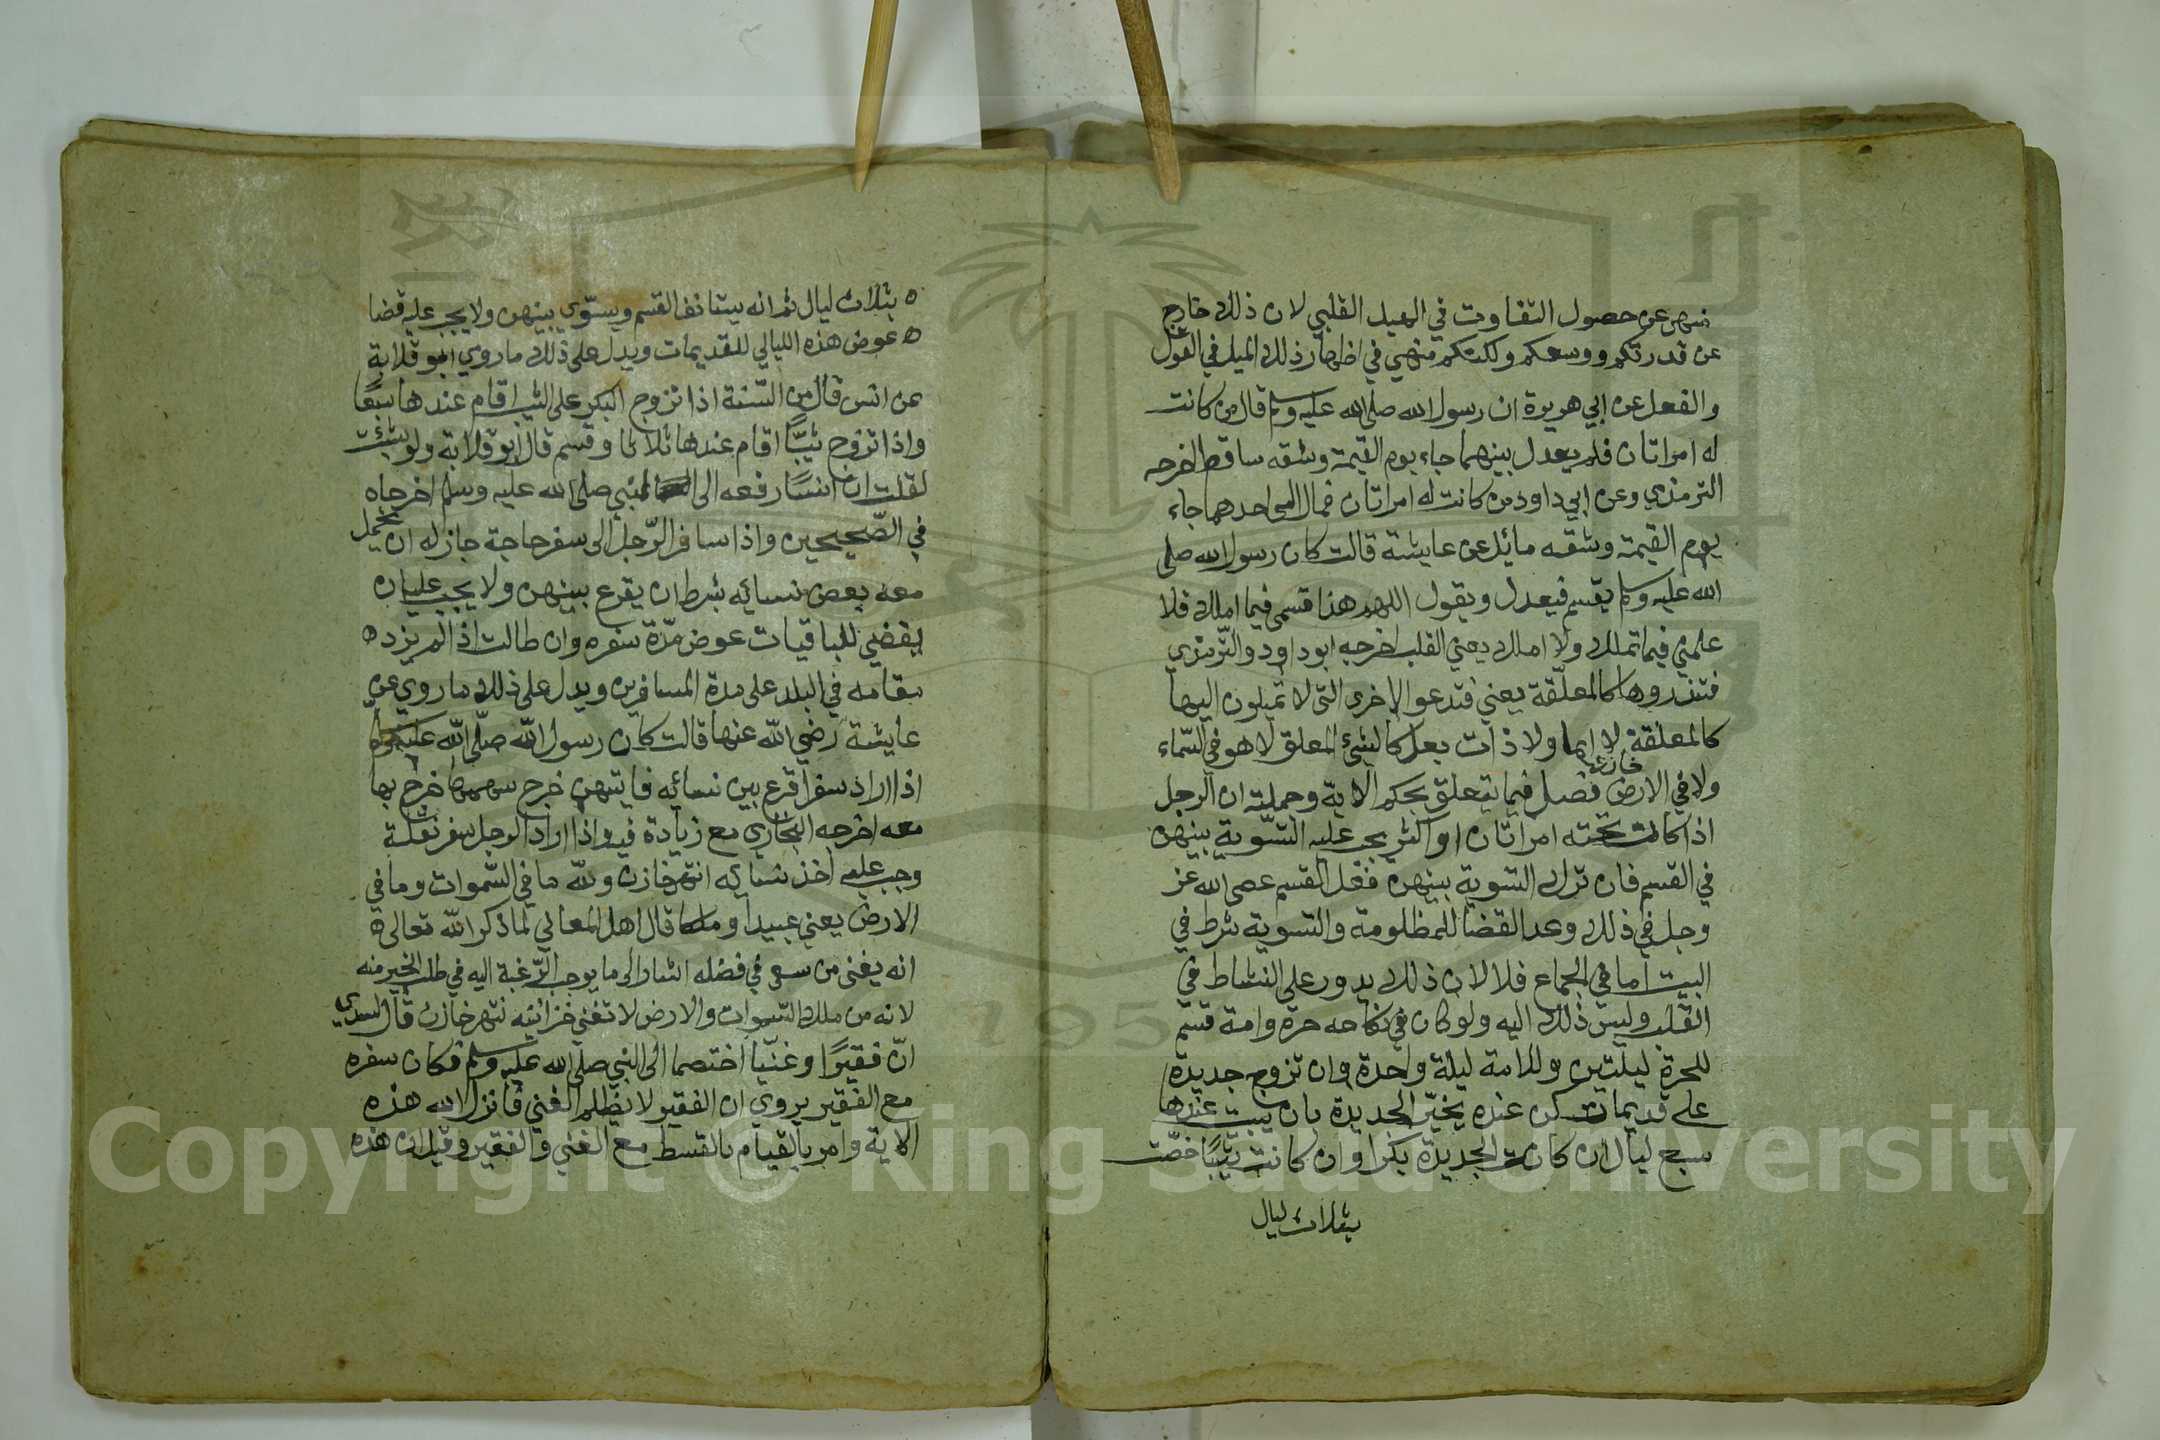 منهن عن حصول التفاوت في الميل القلبي لان ذلك خارج
عن قدرتكم ووسعكم ولكنكم منهي في اظهار ذلك الميل في القول
والفعل عن ابي هريرة ان رسول الله صلى الله عليه وسلم قال من كانت
له امراتان فلم يعدل بينهما جاء يوم القيمة وشقه ساقط اخرجه
الترمذي وعن ابي داود من كانت له امراتان فمال الى احدهما جاء
يوم القيمة وشقه مائل عن عايشة قالت كان رسول الله صلى
الله عليه وسلم يقسم فيعدل ويقول اللهم هذا قسمي فيما املك فلا
تلمني فيما تملك ولا املك يعني القلب اخرجه ابو داود والترمذي
فتذروها كالمعلّقة يعني فتدعوا الاخرى التى لا تميلون اليها
كالمعلقة لا ايما ولا ذات بعل كالشيء المعلق لا هو في السّماء
ولا في الارض خازن فصل فيما يتعلق بحكم الاية وجملته ان الرجل
اذا كانت تحته امراتان او اكثر يجب عليه التسّوية بينهن
في القسم فان ترك التسوية بينهن ففعل القسم عصى الله عز
وجل في ذلك وعد القضا للمظلومة والتسوية شرط في
البيت اما في الجماع فلا لان ذلك يدور على النشاط في
القلب وليس ذلك اليه ولو كان في نكاحه حرة وامة قسم
للحرة ليلتين وللامة ليلة واحدة وان تزوج جديدة
على قديمات كن عنده يخيّر الجديدة بان يبيت عندها
سبع ليال ان كانت الجديدة بكرا وان كانت ثيّبًا خصّت
بثلاث ليال
بثلاث ليال ثم انه يستانف القسم ويسوّي بينهن ولا يجب عليه قضا
عوض هذه الليالي للقديمات ويدل على ذلك ما روي ابو قلابة
عن انس قال من السّنة اذا تزوج البكر على الثيب اقام عندها سبعًا
واذا تزوج ثيبًّا اقام عندها ثلاثا وقسم قال ابو قلابة ولو شئت
لقلت ان انسًا رفعه الى النبي صلى الله عليه وسلم اخرجاه
في الصّحيحين واذا سافر الرّجل الى سفر حاجة جاز له ان يحمل
معه بعض نسائه بشرط ان يقرع بينهن ولا يجب عليه ان
يقضي للباقيات عوض مدّة سفره وان طالت اذا لم يزد
مقامه في البلد على مدة المسافرين ويدل على ذلك ما روي عن
عايشة رضي الله عنها قالت كان رسول الله صلّى الله عليه وسلم
اذا اراد سفرا اقرع بين نسائه فايتهن خرج سهمها خرج بها
معه اخرجه البخاري مع زيادة فيه واذا اراد الرجل سفر نقلة
وجب عليه اخذ نسائه انتهى خازن ولله ما في السّموات وما في
الارض يعني عبيدا وملكا قال اهل المعاني لما ذكر الله تعالى
انه يغنى من سعى في فضله اشار الى ما يوجب الرّغبة اليه في طلب الخير منه
لانه من ملك السّموات والارض لا تفني خزائنه انتهى خازن قال السدي
انّ فقيرًا وغنيّا اختصما الى النبي صلى الله عليه وسلم فكان سفره
مع الفقير يروي ان الفقير لا يظلم الغني فانزل الله هذه
الاية وامر بالقيام بالقسط مع الغني والفقير وقيل ان هذه
Copyright © King Saud University
1957